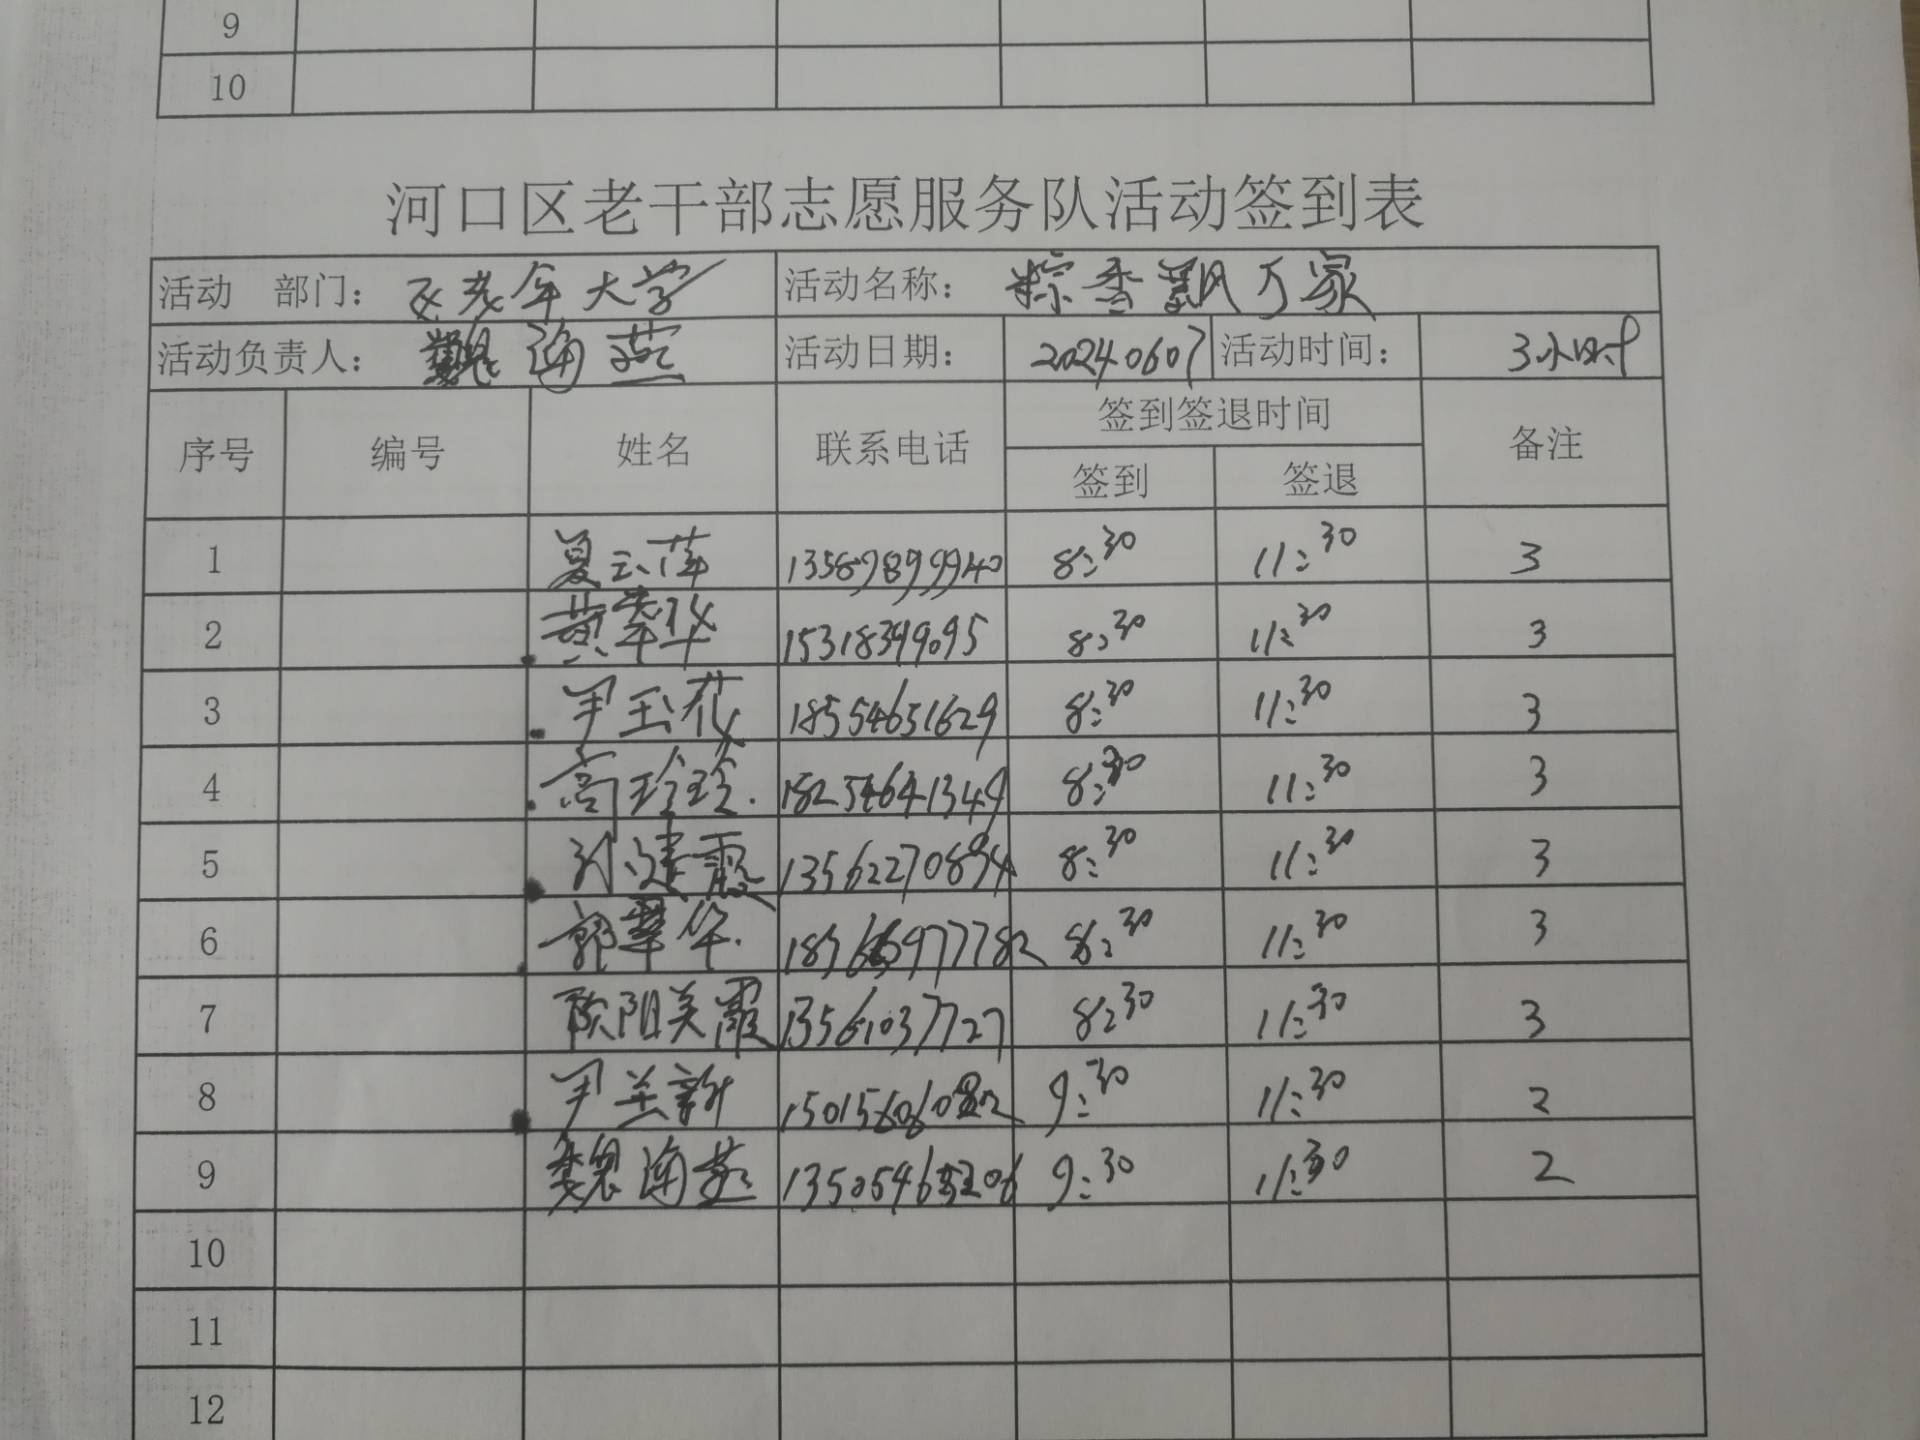 9
10
河口区老干部志愿服务队活动签到表
活动 部门: 区老年大学 活动名称: 粽香飘万家
活动负责人: 魏海燕 活动日期: 20240607 活动时间: 3小时
序号 编号 姓名 联系电话 签到签退时间 备注
签到 签退
1 夏云萍 13589899940 8:30 11:30 3
2 黄翠华 15318399095 8:30 11:30 3
3 尹玉花 18554651629 8:30 11:30 3
4 高玲玲 18254641349 8:30 11:30 3
5 刘建霞 13562270894 8:30 11:30 3
6 郭翠华 8:30 11:30 3
7 欧阳美霞 13561037727 8:30 11:30 3
8 尹兰新 9:30 11:30 2
9 魏海燕 9:30 11:30 2
10
11
12